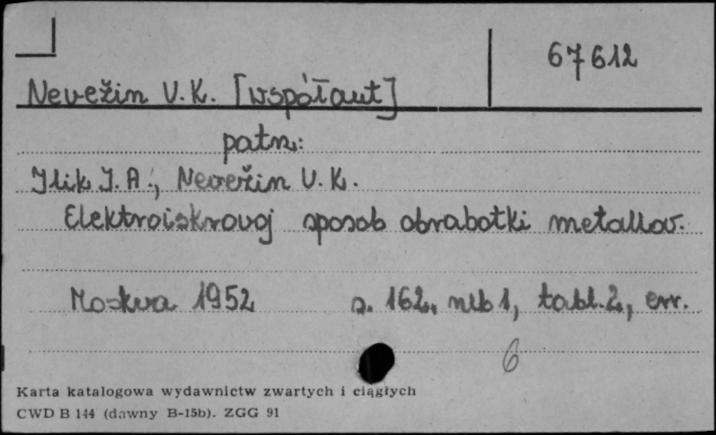 67612
Nevežin V.K. [współaut]
patrz:
Ilik I.A., Nevežin V.K.
Elektroiskrovoj sposob obrabotki metallov.
Moskva 1952 s. 162, nlb 1, tabl. 2, err.
6
Karta katalogowa wydawnictw zwartych i ciągłych
CWD B 144 (dawny B-15b). ZGG 91